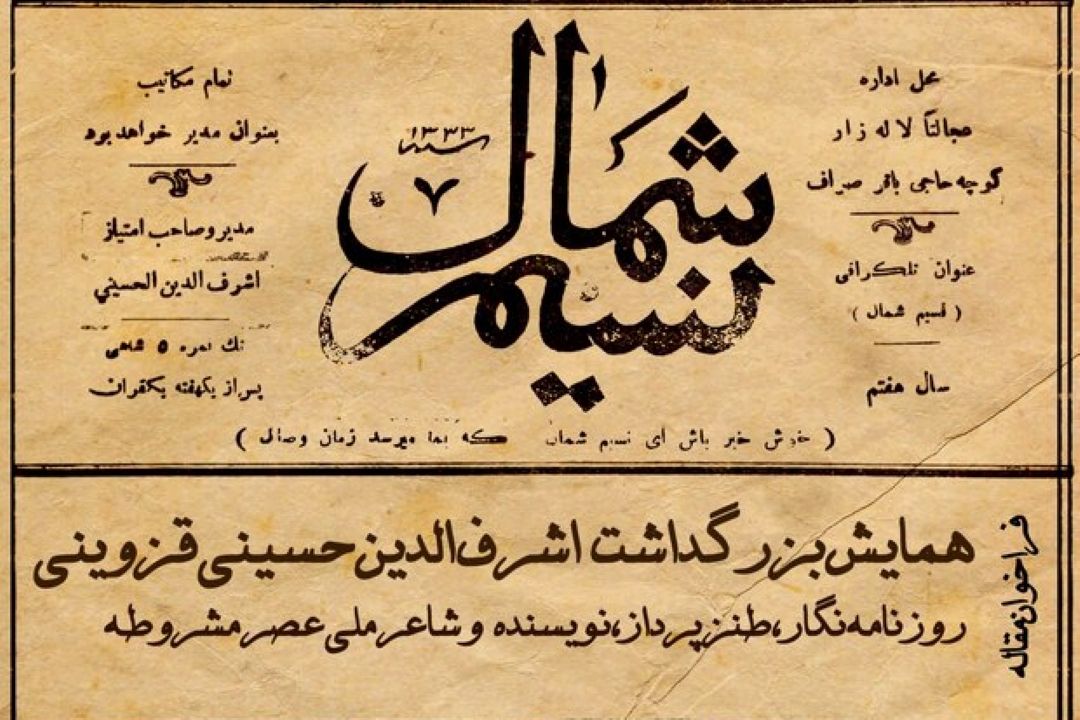 محل ادارہ
عجالتاً لاله زار
کوچه حاجی باقر صراف
عنوان تلکرافی
( نسیم شمال )
سال هفتم
نسیم شمال
سنه ۱۳۳۳
۷
تمام مکاتیب
بعنوان مدیر خواهد بود
مدیر و صاحب امتیاز
اشرف الدین الحسینی
تك نمره ۵ شاهی
پس از یکهفته یکقران
( خوش خبر باش ای نسیم شمال که بما میرسد زمان وصال )
فراخوان مقاله
همایش بزرگداشت اشرف‌الدین حسینی قزوینی
روزنامه‌نگار، طنزپرداز، نویسنده و شاعر ملی عصر مشروطه